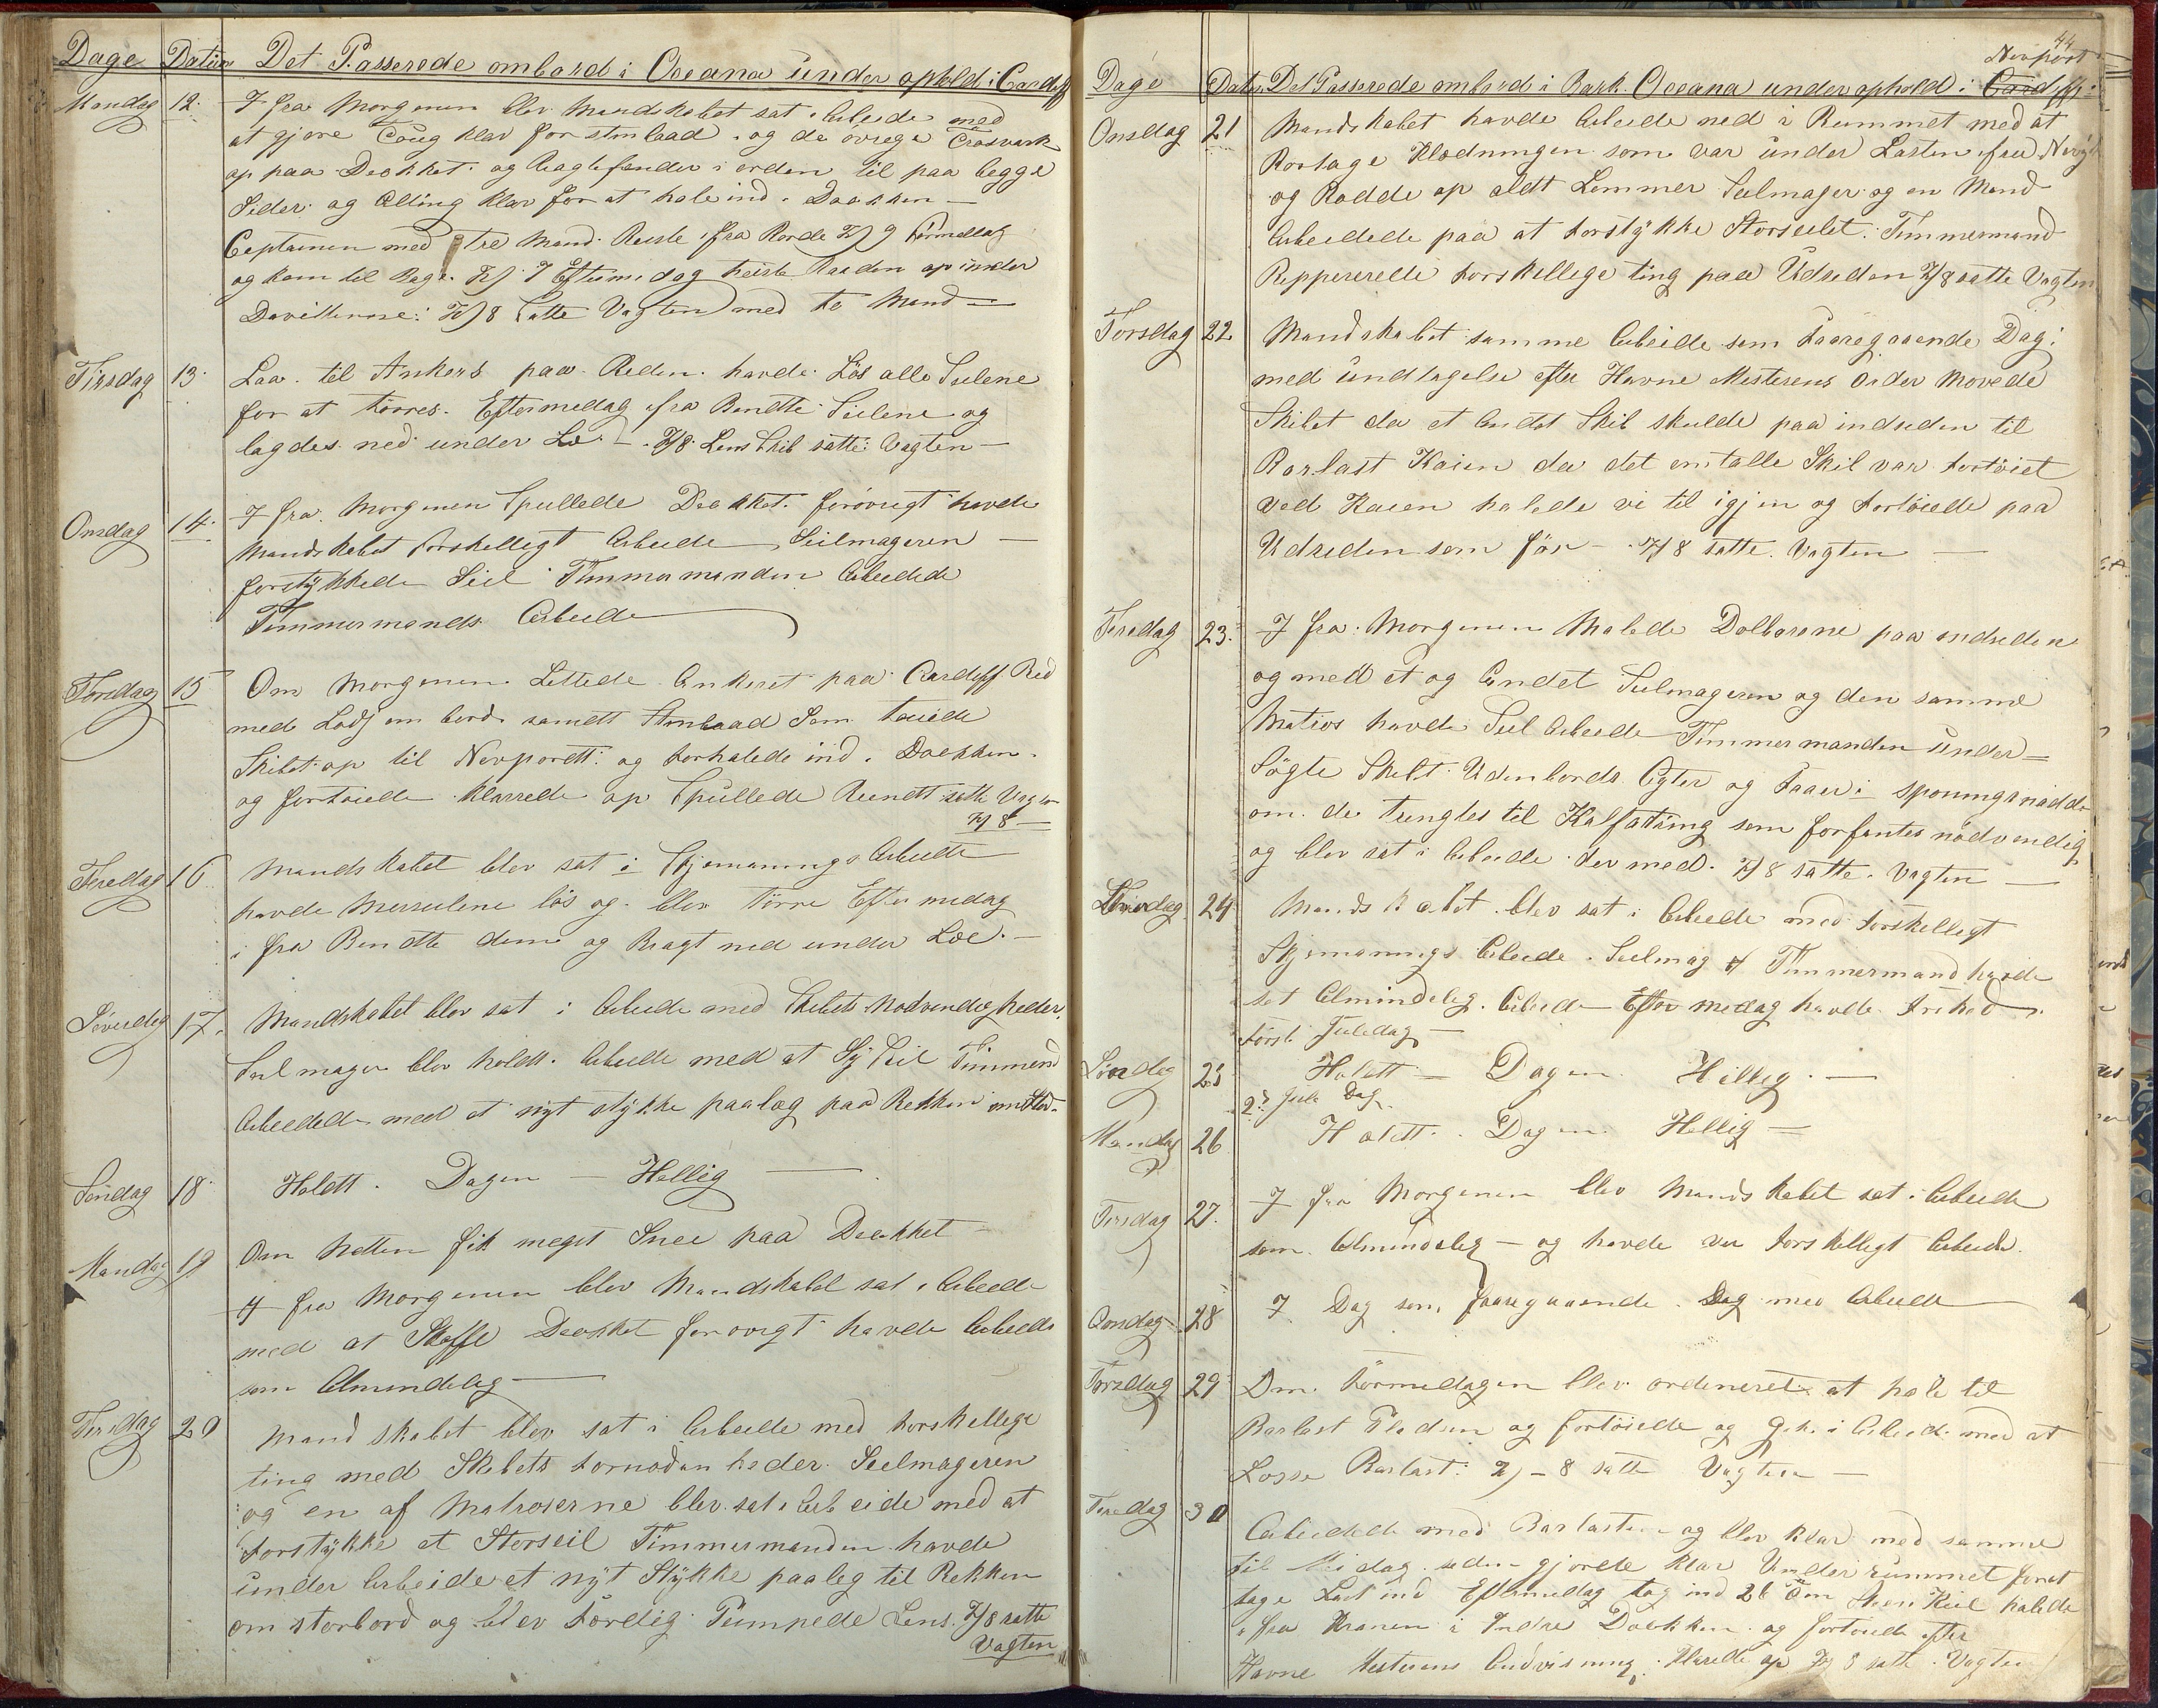 Dage Datum Det Passerede ombord i Oceana under ophold i Cardiff
Mandag 12. I fra Morgenen blev Mandskabet sat i Arbeide med
at gjøre Toug klar for stmbaad. og de øvrege Trosvark
op paa Dækket. og Aagtefender i orden til paa begge
Sider. og Alting klar for at hale ind i Dokken —
Captainen med tre Mand. Reiste ifra Borde Kl 9 Formedag
og kom til Bage. Kl 7 Eftermedag heiste Baaden op under
Davitterne: Kl 8 satte Vagten med to Mand —
Tirsdag 13. Laa. til Ankers paa Reden. havde Løs alle Seilene
for at tørres. Eftermedag ifra Bendte Seilene og
lagdes ned under Lo. — Kl 8 Lens Skib satte Vagten —
Onsdag 14. I fra Morgenen Spullede Dækket. forøvrigt havde
Mandskabet forskelligt Arbeide Seilmageren —
forstykkede Seil Timmermanden Arbeidede
Timmermands Arbeide
Torsdag 15 Om Morgenen Lettede Ankeret paa Cardiff Red
med Lods om bord. samdt Stmbaad Som touede
Skibet op til Nevporett. og forhalede ind i Dokken.
og fortøiede klarede op Spullede Rendtt satte Vagten
Kl 8 —
Fredag 16 Mandskabet blev sat i Skjemannings Arbeide
havde Merseilene løs og blev tørre Eftermedag
i fra Bendte dem og Bragt ned under Loe. —
Løverdag 17. Mandskabet blev sat i Arbeide med Skibets Nødvendigheder.
Seilmager blev holdt. Arbeide med at Sy Seil Timmermd
Arbeidede med et nyt stykke paalæg paa Rekken omStb.
Søndag 18. Holdtt. Dagen — Hellig —
Mandag 19 Om Natten fik meget Snee paa Dækket —
I fra Morgenen blev Mandskabet sat i Arbeide
med at Skoffle Dækket forøvrigt havde Arbeide
som Almindelig —
Tirsdag 20 Mandskabet blev sat i Arbeide med forskellige
ting med Skibets fornødenheder. Seilmageren
og en af Matroserne blev sat i Arbeide med at
forstykke et Storseil Timmermanden havde
under Arbeide et nyt Stykke paaleg til Rekken
om storbord og blev færdig. Pumpede Lens. Kl 8 satte
Vagten
44
Nevport
Dage Datum Det Passerede ombord i Bark Oceana under ophold i Cardiff:
Onsdag 21 Mandskabet havde Arbeide ned i Rummet med at
Bortage Klædningen som var under Lasten ifra
og Rødde op aldt Lemmer Seilmager og en Mand
Arbeidede paa at forstykke Storseilet. Timmermand
Reppererede forskellige ting paa Udseden Kl 8 satte Vagten
Torsdag 22 Mandskabet samme Arbeide som Foaregaaende Dag.
med undtagelse efter Havne Mesterens order Movede
Skibet da et Andet Skib skulde paa indseden til
Barlast Kaien da det omtalte Skib var fortøiet
ved Kaien halede vi til igjen og fortøiede paa
Udseden som før — Kl 8 satte Vagten —
Feredag 23. I fra Morgenen Malede Dolborene paa indseden
og medt et og Andet Seilmageren og den samme
Matros havde Seil Arbeide Timmermanden under=
Søgte Skibt Udenbords Agter og Foaer i
om de trengtes til Kalfatring som forfantes nødvendig
og blev sat i Arbeide der med. Kl 8 satte Vagten —
Løverdag 24 Mandskabet blev sat i Arbeide med forskelligt
Skjemannings Arbeide. Seilmag & Timmermand havde
set Almindelig Arbeide Eftermedag havde Frehed.
Første Juledag —
Søndag 25 Holdtt — Dagen Hellig —
2de Jule Dag
Mandag 26 Holdtt. Dagen Hellig —
Tirsdag 27. I fra Morgenen blev Mandskabet sat i Arbeide
som Almindelig — og havde var forskelligt Arbeide.
Onsdag 28 I Dag som foaregaaende Dag med Arbeide
Torsdag 29 Om Formedagen blev ordineret at hale til
Barlast Pladsen og fortøiede og gik i Arbeide med at
Losse Barlast. Kl — 8 satte Vagten —
Feredag 30 Arbeidede med Barlasten og blev klar med samme
til Midag. seden gjorde klar Under rummet forat
tage Last ind Eftermedag tog ind 26 halede
i fra Kranen i Indre Dokken og fortøiede efter
Havne Mesterens Andvisning. Klarede op Kl 8 satte Vagten